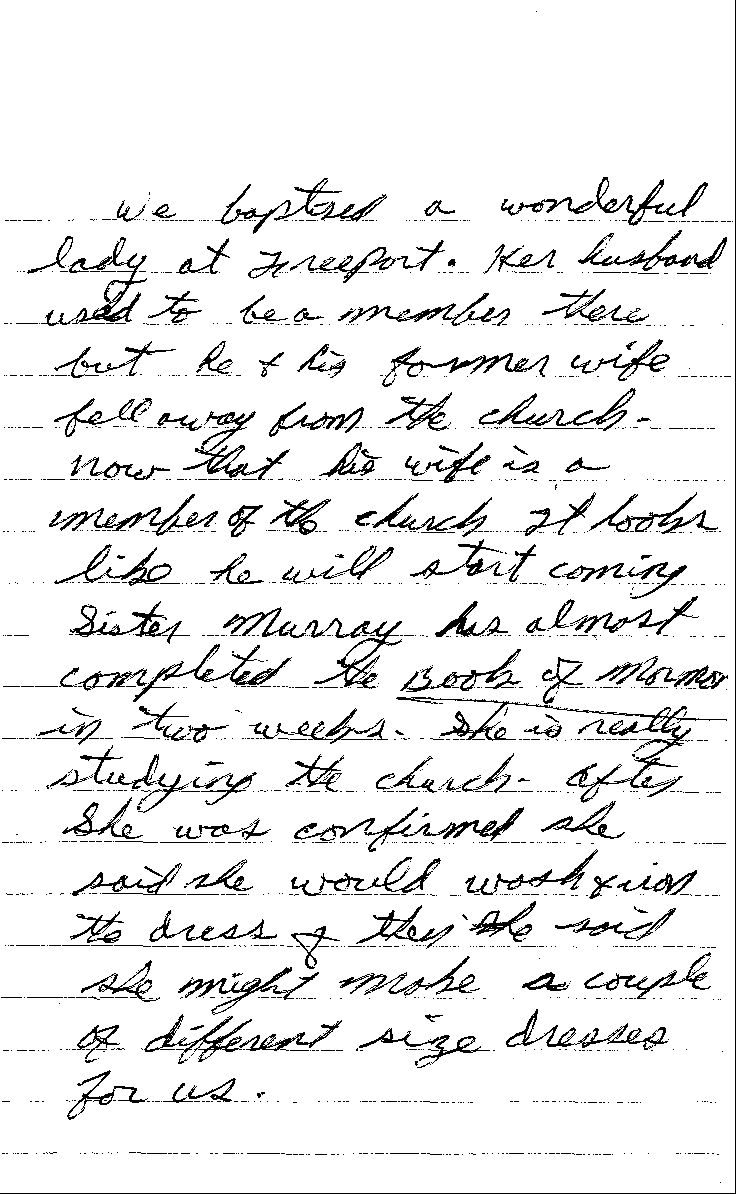 We baptized a wonderful
lady at Freeport. Her husband
used to be a member there
but he & his former wife
fell away from the church -
now that his wife is a
member of the church It looks
like he will start coming
Sister Murray has almost
completed the Book of Mormon
in two weeks. She is really
studying the church - after
She was confirmed she
said she would wash & iron
the dress & then she said
she might make a couple
of different size dresses
for us.